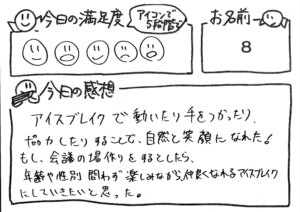 今日の満足度
アイコンで
5段階で
お名前
8
今日の感想
アイスブレイクで動いたり手をつかったり、
協力したりすることで、自然と笑顔になれた!
もし、会議の場作りをするとしたら、
年齢や性別問わず楽しみながら仲良くなれるアイスブレイク
にしていきたいと思った。